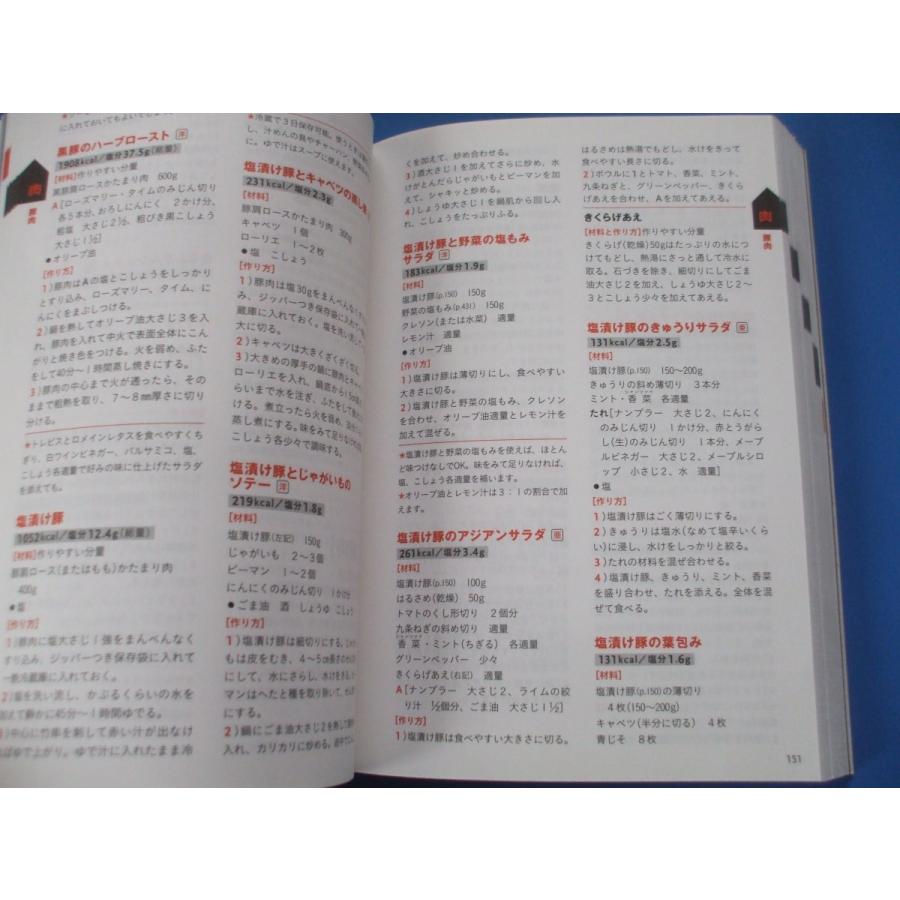 に入れておいてもよいでしょ
黒豚のハーブロースト 洋
1908kcal/塩分37.5g(総量)
[材料]作りやすい分量
黒豚肩ロースかたまり肉 600g
A[ローズマリー・タイムのみじん切り
各5本分、おろしにんにく 2かけ分、
粗塩 大さじ2½、粗びき黒こしょう
大さじ1½]
●オリーブ油
[作り方]
1)豚肉はAの塩とこしょうをしっかり
とすり込み、ローズマリー、タイム、に
んにくをまぶしつける。
2)鍋を熱してオリーブ油大さじ3を入
れ、豚肉を入れて中火で表面全体にこん
がりと焼き色をつける。火を弱め、ふた
をして40分〜1時間蒸し焼きにする。
3)豚肉の中心まで火が通ったら、その
まま粗熱を取り、7〜8mm厚さに切り
分ける。
★トレビスとロメインレタスを食べやすくち
ぎり、白ワインビネガー、バルサミコ、塩、
こしょう各適量で好みの味に仕上げたサラダ
を添えても。
塩漬け豚
1052kcal/塩分12.4g(総量)
[材料]作りやすい分量
豚肩ロース(またはもも)かたまり肉
400g
●塩
[作り方]
1)豚肉に塩大さじ1強をまんべんなく
すり込み、ジッパーつき保存袋に入れて
一晩冷蔵庫に入れておく。
2)塩を洗い流し、かぶるくらいの水を
加えて静かに45分〜1時間ゆでる。
3)中心に竹串を刺して赤い汁が出なけ
ればゆで上がり。ゆで汁に入れたまま冷
★冷蔵で3日保存可能。使うときは
し、汁めんの具やチャーハン、
に。ゆで汁はスープに使えます。
塩漬け豚とキャベツの蒸し
231kcal/塩分2.3g
[材料]
豚肩ロースかたまり肉 300g
キャベツ 1個
ローリエ 1〜2枚
●塩 こしょう
[作り方]
1)豚肉は塩30gをまんべんなく
み、ジッパーつき保存袋に入れて
蔵庫に入れておく。塩を洗い流し
大に切る。
2)キャベツは大きくざく切り
3)大きめの厚手の鍋に豚肉とキャベ
ローリエを入れ、鍋底から1.5cm
らいまで水を注ぎ、ふたをして
る。煮立ったら火を弱め、
蒸し煮にする。味をみて足りなけれ
こしょう各少々で調味する。
塩漬け豚とじゃがいもの
ソテー 洋
219kcal/塩分1.8g
[材料]
塩漬け豚(左記) 150g
じゃがいも 2〜3個
ピーマン 1〜2個
にんにくのみじん切り 1かけ分
●ごま油 酒 しょうゆ こしょう
[作り方]
1)塩漬け豚は細切りにする。じゃが
もは皮をむき、4〜5cm長さのせん
にして、水にさらし、水けをきる。
マンはへたと種を取り除いて、せん
する。
2)鍋にごま油大さじ2を熱して豚
入れ、カリカリに炒める。
くを加えて、炒め合わせる。
3)酒大さじ1を加えてさらに炒め、水
けがとんだらじゃがいもとピーマンを加
えて、シャキッと炒める。
4)しょうゆ大さじ1を鍋肌から回し入
れ、こしょうをたっぷりふる。
塩漬け豚と野菜の塩もみ
サラダ 洋
183kcal/塩分1.9g
[材料]
塩漬け豚(p.150) 150g
野菜の塩もみ(p.431) 150g
クレソン(または水菜) 適量
レモン汁 適量
●オリーブ油
[作り方]
1)塩漬け豚は薄切りにし、食べやすい
大きさに切る。
2)塩漬け豚と野菜の塩もみ、クレソン
を合わせ、オリーブ油適量とレモン汁を
加えて混ぜる。
★塩漬け豚と野菜の塩もみを使えば、ほとん
ど味つけなしでOK。味をみて足りなければ、
塩、こしょう各適量を補います。
★オリーブ油とレモン汁は3:1の割合で加
えます。
塩漬け豚のアジアンサラダ 亜
261kcal/塩分3.4g
[材料]
塩漬け豚(p.150) 100g
はるさめ(乾燥) 50g
トマトのくし形切り 2個分
九条ねぎの斜め切り 適量
香菜・ミント(ちぎる) 各適量
グリーンペッパー 少々
きくらげあえ(右記) 適量
A[ナンプラー 大さじ2、ライムの絞
り汁 ½個分、ごま油 大さじ1½]
[作り方]
1)塩漬け豚は食べやすい大きさに切る。
はるさめは熱湯でもどし、水けをきって
食べやすい長さに切る。
2)ボウルに1とトマト、香菜、ミント、
九条ねぎと、グリーンペッパー、きくら
げあえを合わせ、Aを加えてあえる。
きくらげあえ
[材料と作り方]作りやすい分量
きくらげ(乾燥)50gはたっぷりの水につ
けてもどし、熱湯にさっと通して冷水に
取る。石づきを除き、細切りにしてごま
油大さじ2を加え、しょうゆ大さじ2〜
3とこしょう少々を加えてあえる。
塩漬け豚のきゅうりサラダ 亜
131kcal/塩分2.5g
[材料]
塩漬け豚(p.150) 150〜200g
きゅうりの斜め薄切り 3本分
ミント・香菜 各適量
たれ[ナンプラー 大さじ2、にんにく
のみじん切り 1かけ分、赤とうがら
し(生)のみじん切り 1本分、メープ
ルビネガー 大さじ2、メープルシロ
ップ 小さじ2、水 適量]
●塩
[作り方]
1)塩漬け豚はごく薄切りにする。
2)きゅうりは塩水(なめて塩辛いくら
い)に浸し、水けをしっかりと絞る。
3)たれの材料を混ぜ合わせる。
4)塩漬け豚、きゅうり、ミント、香菜
を盛り合わせ、たれを添える。全体を混
ぜて食べる。
塩漬け豚の葉包み
131kcal/塩分1.6g
[材料]
塩漬け豚(p.150)の薄切り
4枚(150〜200g)
キャベツ(半分に切る) 4枚
青じそ 8枚
肉
豚肉
肉
豚肉
151